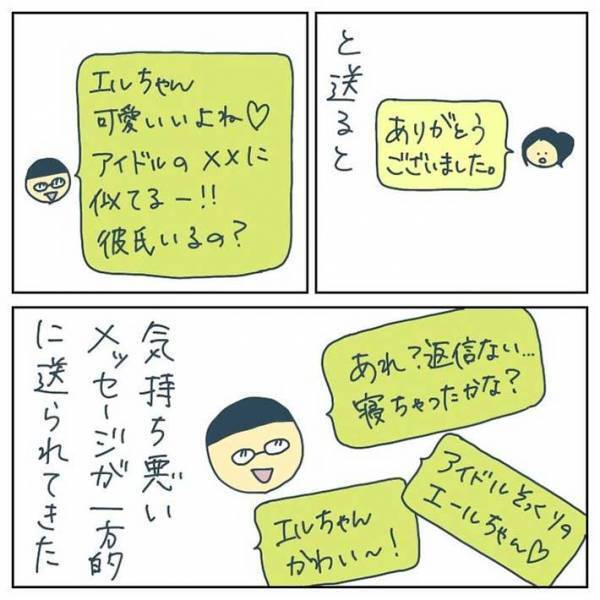 と送ると
ありがとう
ございました。
エルちゃん
可愛いいよね♡
アイドルの××に
似てるー!!
彼氏いるの?
あれ?返信ない…
寝ちゃったかな?
アイドルそっくりの
エールちゃん♡
エルちゃん
かわい〜!
気持ち悪い
メッセージが一方的
に送られてきた